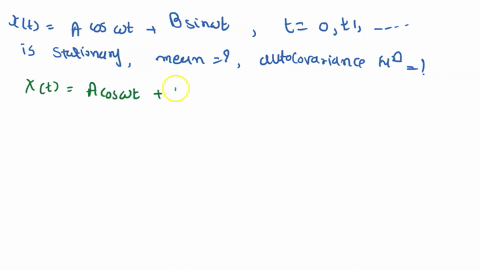 X(t) = A cos ωt + B sin ωt , t = 0, t1, ....
is stationary, mean = ?, autocovariance = ?
X(t) = A cos ωt +